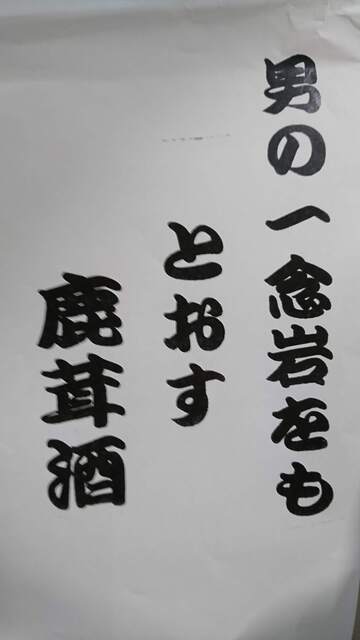 男の一念岩をも
とおす
鹿茸酒